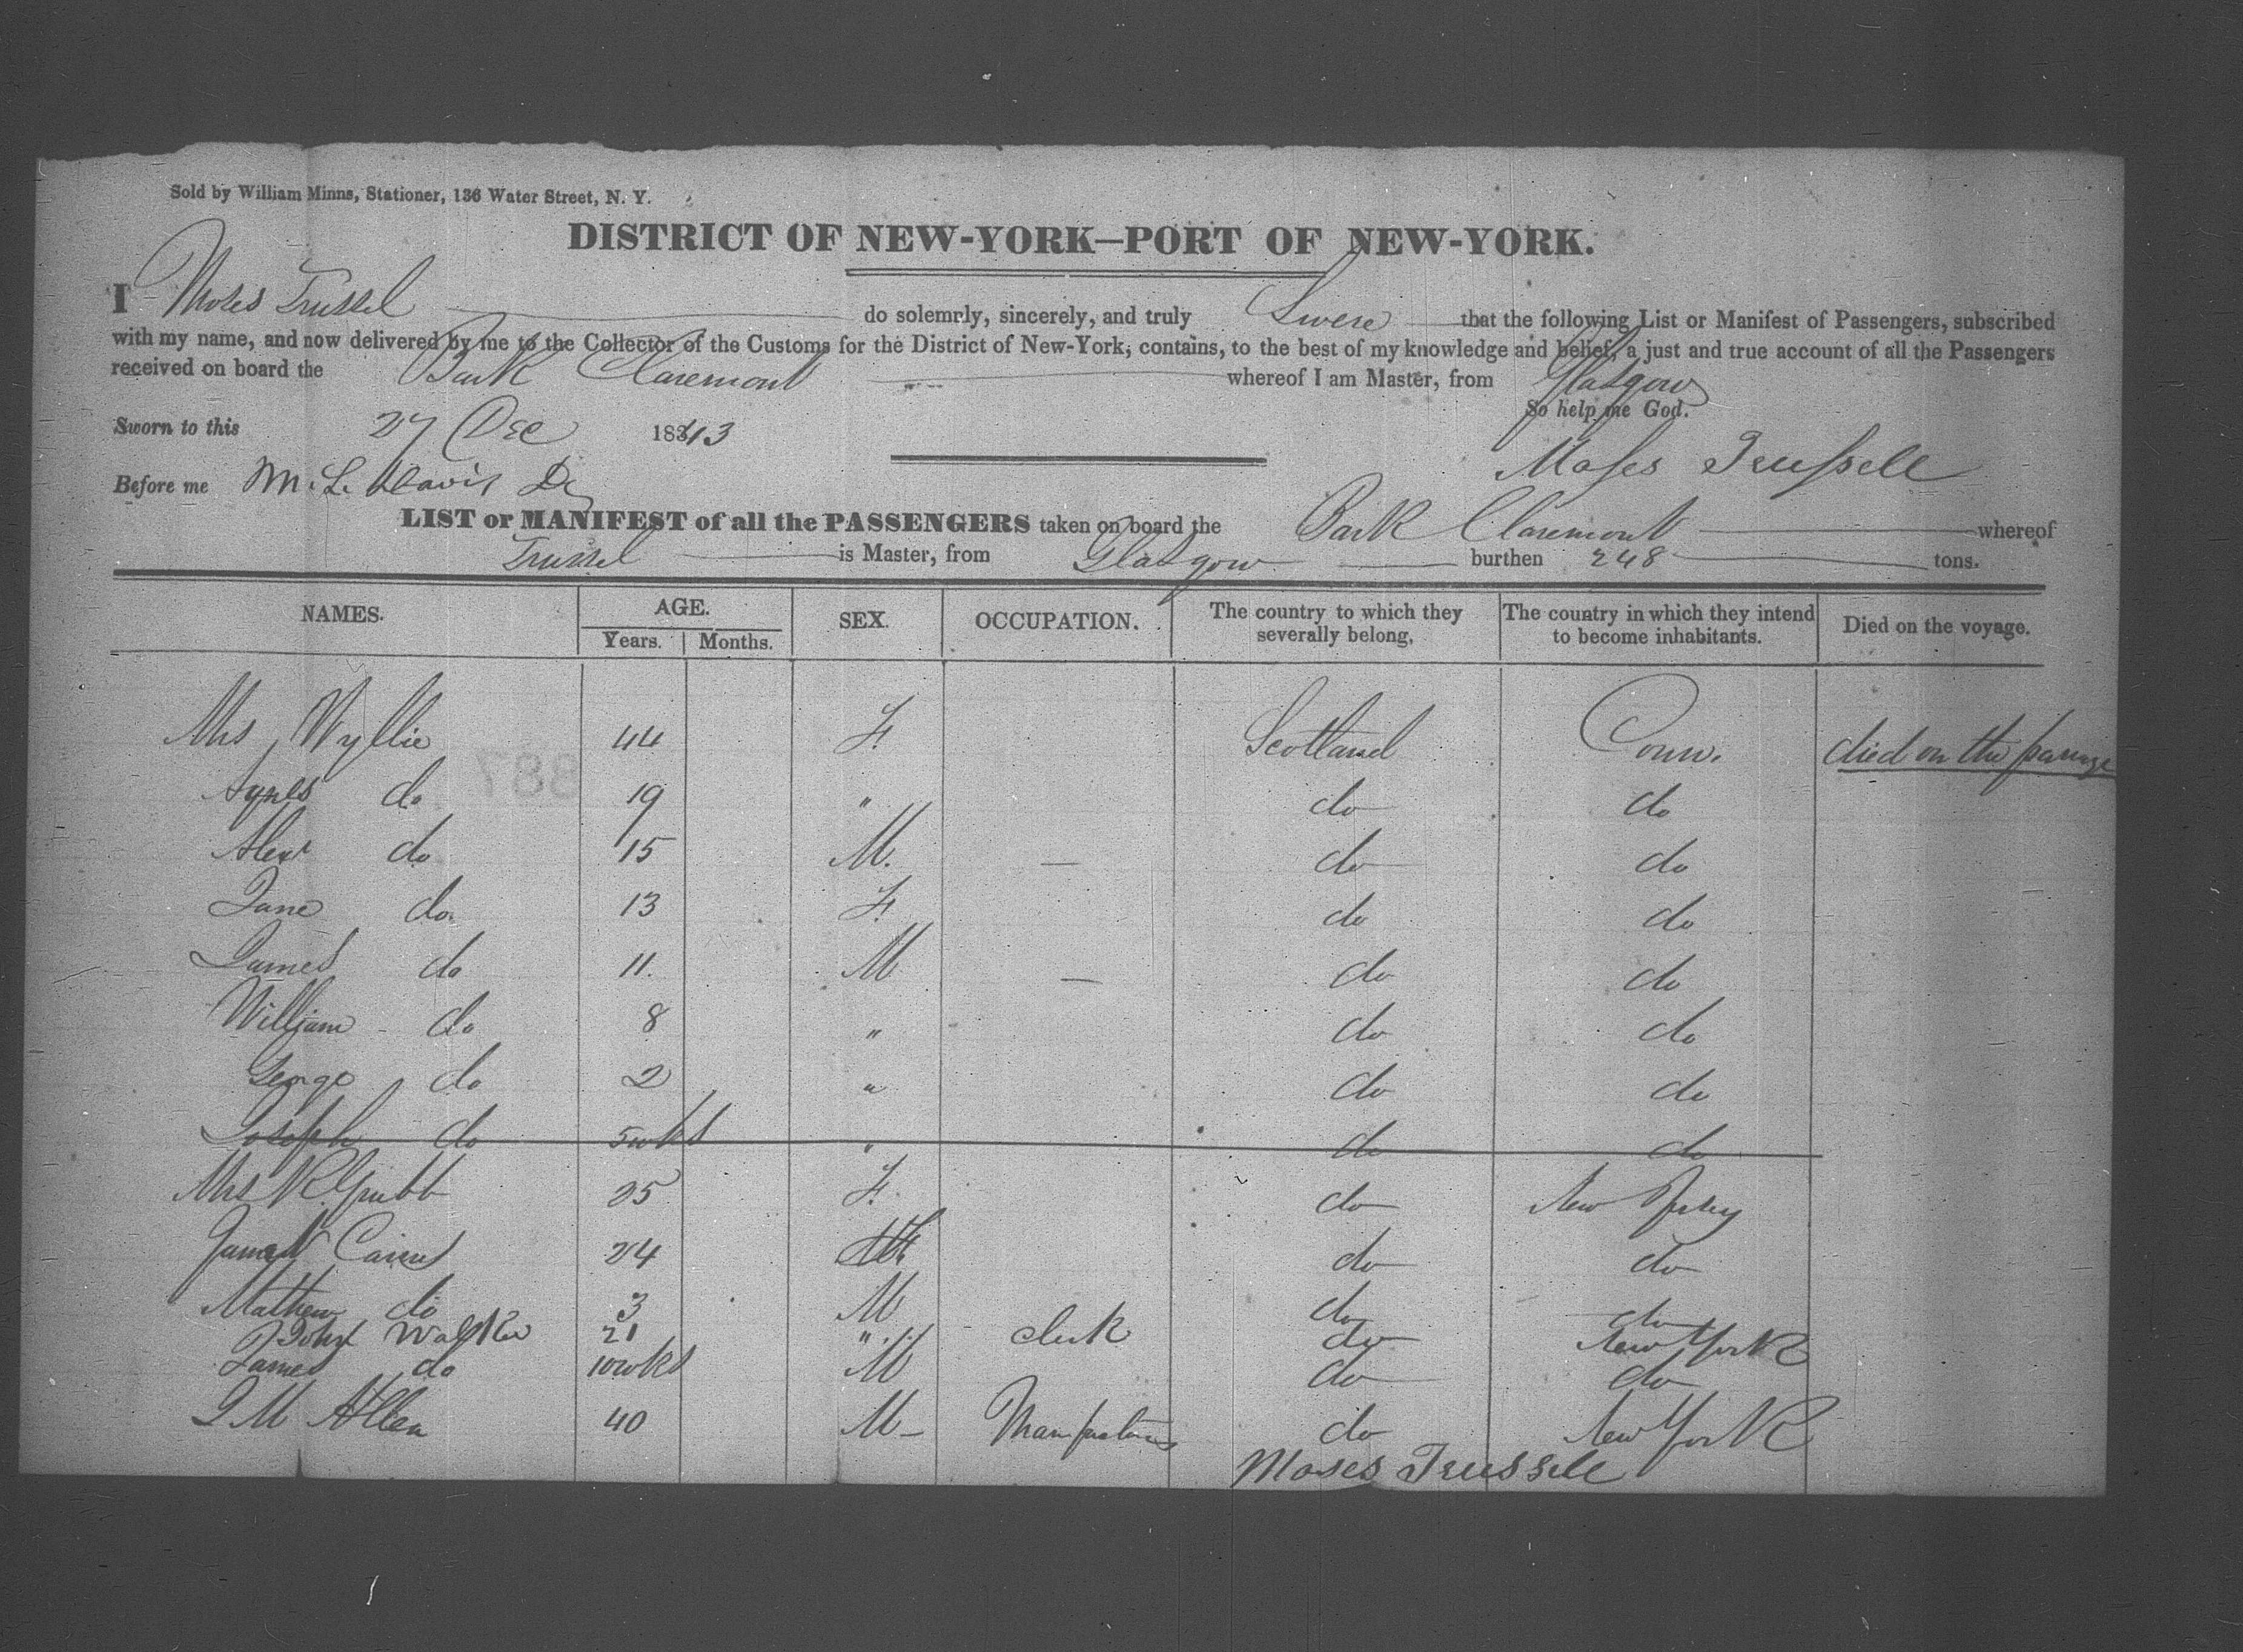 Sold by William Minns, Stationer, 136 Water Street, N. Y.
DISTRICT OF NEW-YORK—PORT OF NEW-YORK.
I Moses Trussel do solemnly, sincerely, and truly Swere that the following List or Manifest of Passengers, subscribed
with my name, and now delivered by me to the Collector of the Customs for the District of New-York, contains, to the best of my knowledge and belief, a just and true account of all the Passengers
received on board the Bark Claremont whereof I am Master, from Glasgow
So help me God.
Sworn to this 27 Dec 1843
Moses Trussell
Before me M. L. Davis
LIST or MANIFEST of all the PASSENGERS taken on board the Bark Claremont whereof
Trussel is Master, from Glasgow burthen 248 tons.
NAMES. AGE. SEX. OCCUPATION. The country to which they severally belong, The country in which they intend to become inhabitants. Died on the voyage.
Years. Months.
Mrs Wyllie 44 F. Scotland Conn. died on the passage
Agnes do 19 " do do
Alexr do 15 M. — do do
Jane do. 13 F. do do
James do 11. M — do do
William do 8 " do do
George do 2 " do do
Joseph do 5 wks " do do
Mrs 25 F. do New Jersey
24 do do
Mathew do 3 M do do
John Walker 21 " clerk do New York
James do 10 wks M do do
J M Allen 40 M — do New York
Moses Trussell
887